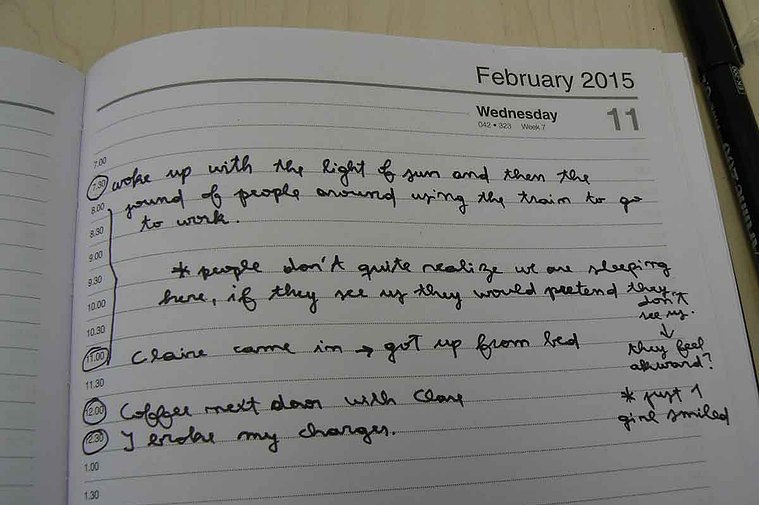 February 2015
Wednesday 11
042 • 323 Week 7
7.00
7.30 woke up with the light of sun and then the
8.00 sound of people around using the train to go
8.30 to work.
9.00
9.30 * people don't quite realize we are sleeping
10.00 here, if they see us they would pretend they
don't
see us.
10.30
↓
11.00 Claire came in → got up from bed
they feel
akward?
11.30
12.00 Coffee next door with Clare
* just 1
girl smiled
12.30 I broke my charger.
1.00
1.30